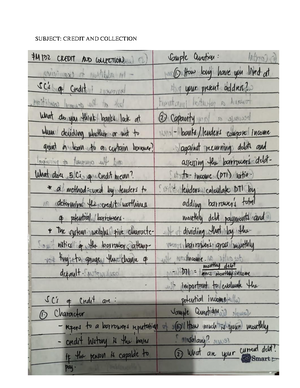 SUBJECT: CREDIT AND COLLECTION
FM 102 CREDIT AND COLLECTION
5C's of Credit
What do you think banks look at
when deciding whether or not to
grant a loan to a certain borrower?
What does 5C's of Credit mean?
* a method used by lenders to
determine the credit worthiness
of potential borrowers.
* The system weighs five characte-
ristics of the borrower, attemp-
ting to gauge the chance of
default
5C's of Credit are:
① Character
- refers to a borrower's reputation
- credit history is the
if the person is capable to
pay
Sample Question:
① How long have you lived at
your present address?
② Capacity
- banks/lenders compare income
against recurring debts and
assessing the borrower's debt-
to-income (DTI) ratio
- lenders calculate DTI by
adding borrower's total
monthly debt payments and
dividing that by the
borrower's gross monthly
income
DTI = monthly debt
- important to evaluate the
potential income
Sample Question:
① How much is your monthly
salary?
② What are your current debt?
Smart